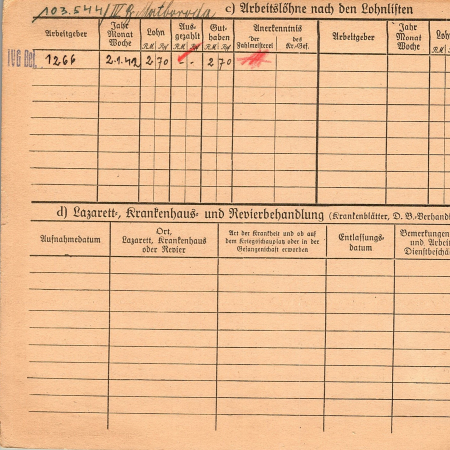 103.544/IV B c) Arbeitslöhne nach den Lohnlisten
Arbeitgeber Jahr Monat Woche Lohn R.M. Rpf Ausgezahlt R.M. Rpf Guthaben R.M. Rpf Anerkenntnis der Zahlmeisterei des Kr.-Gef. Arbeitgeber Jahr Monat Woche Loh R.M.
IVG Del. 1266 2.1.42 2 70 - - 2 70
d) Lazarett-, Krankenhaus- und Revierbehandlung (Krankenblätter, D. B.-Verhandl
Aufnahmedatum Ort, Lazarett, Krankenhaus oder Revier Art der Krankheit und ob auf dem Kriegsschauplatz oder in der Gefangenschaft erworben Entlassungsdatum Bemerkungen und Arbeit Dienstbeschä